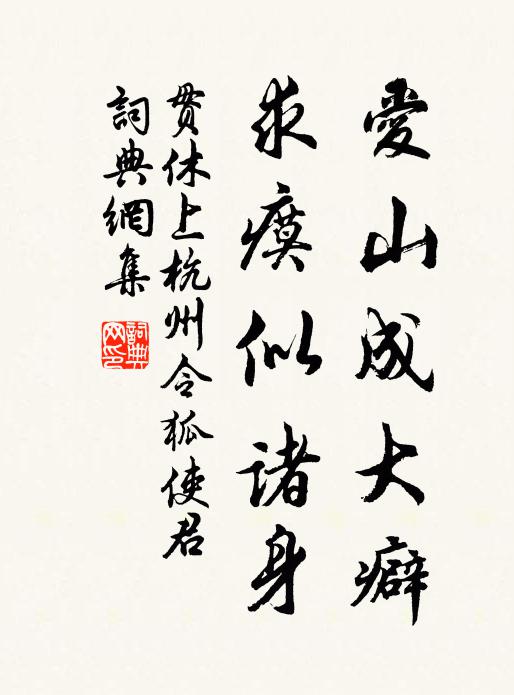 愛山成大癖
求瘼似諸身
貫休上杭州令狐使君
詞典網集
詞典網印